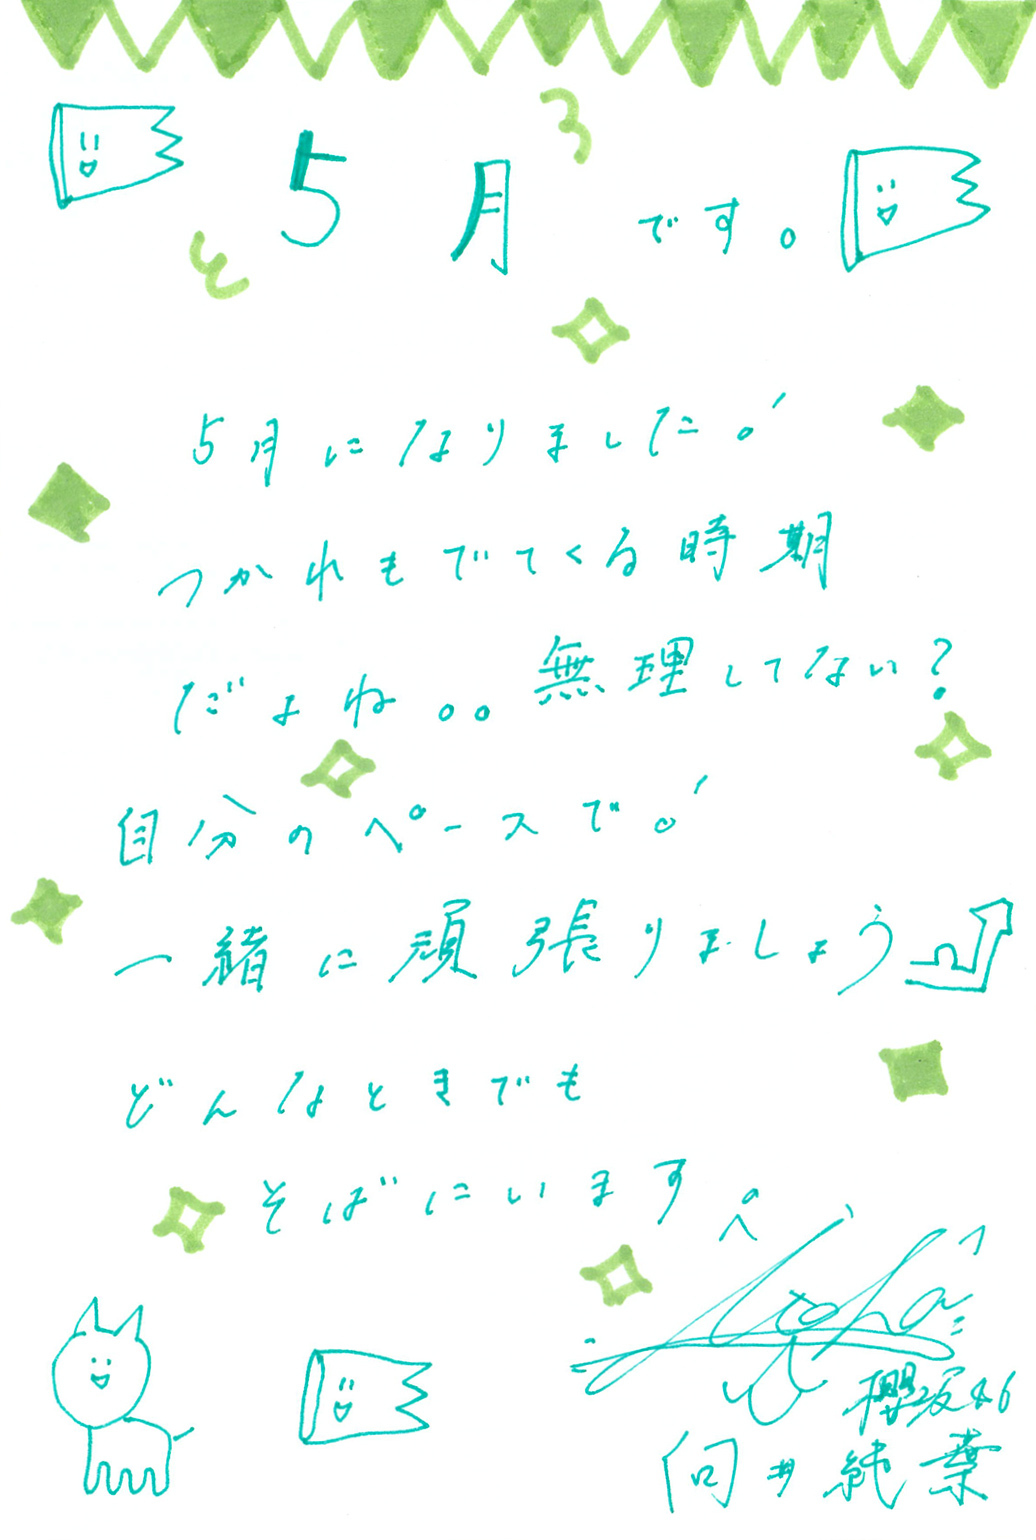 5月です。
5月になりました。
つかれもでてくる時期
だよね。。無理してない?
自分のペースで。
一緒に頑張りましょう
どんなときでも
そばにいます
櫻坂46
向井純葉